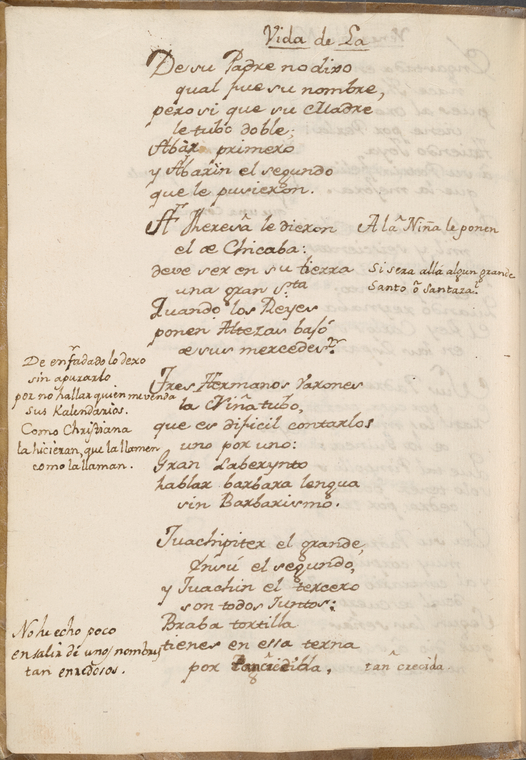 Vida de La
De su Padre no dixo
qual fue su nombre,
pero si que su Madre
le tubo doble;
Abar primero
y Abarin el segundo
que le pusieron.
A Theresa le dieron
el de Chicaba:
deve ser en su tierra
una gran sta
Quando los Reyes
ponen Altezas bajó
de sus mercedes.
A la Niña le ponen
Si sera allá algun grande
Santo ó Santaza.
De enfadado lo dexo
sin apurarlo
por no hallar quien me venda
sus Kalendarios.
Como Christiana
la hicieran, que la llamen
como la llaman.
Tres Hermanos Varones
la Niña tubo,
que es dificil contarlos
uno por uno:
Gran Laberynto
hablar barbara lengua
sin Barbarismo.
Juachipiter el grande,
Ensú el segundo,
y Juachin el tercero
son todos Juntos:
Braba tortilla
tienes en essa terna
por
tan crecida
No he echo poco
en salir de unos nombres
tan enredosos.